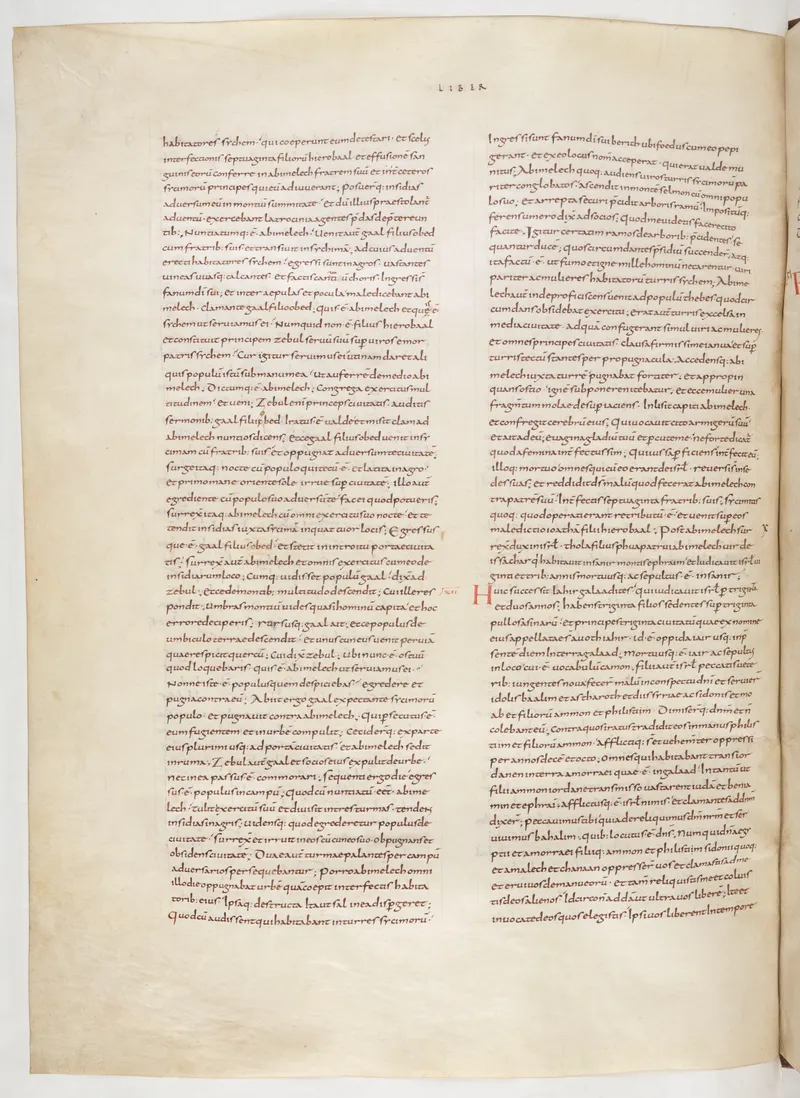 LIBER
habitatores sychem · qui coeperunt eum detestari · et scelus
interfectionis septuaginta filiorū hierobaal · et effusionē san
guinis eorū conferre in abimelech fratrem suū · et in cęteros
sycimorū principes qui eū adiuuerant; posuerq; insidias
aduersum eū in montiū summitate · Et dū illius praestolant
aduentū · exercebant latrocinia agentes pdas de ptereun
tib; Nuntiatumq; ē abimelech; Uenit aut gaal filius obed
cum fratrib; suis et transiuit in sychimā; ad cuius aduentū
erecti habitatores sychem · egressi sunt in agros · uastantes
uineas uuasq; calcantes · Et factis cantantiū choris · Ingressi s
fanum di sui; et inter aepulas et pocula maledicebant abi
melech · clamante gaal filio obed; quis ē abimelech et quę ē
sychem ut seruiamus ei · Numquid non ē filius hierobaal
et constituit principem zebul seruū suū sup uiros emor
patris sychem · Cur igitur seruimus ei utinam daret ali
quis populū istū sub manu mea · ut auferrē de medio abi
melech; Dictumq; ē abimelech; Congrega exercitus mul
titudinem · et ueni; Zebul enī princeps ciuitatis auditis
sermonib; gaal filii obed · Iratus ē ualde et misit clam ad
abimelech nuntios dicens; Ecce gaal filius obed uenit in sy
cimam cū fratrib; suis et oppugnat aduersum te ciuitatē;
surge itaq; nocte cū populo qui tecū ē · et latita in agro ·
et primo mane oriente sole irrue sup ciuitatē; illo aut
egrediente cū populo suo aduersū te · fac ei quod potueris;
surrexit itaq; abimelech cū omni exercitu suo nocte · et te
tendit insidias iuxta sycimā in quattuor locis; Egressus
que · ē · gaal filius obed · et stetit in introitu portae ciuita
tis; surrexit aut abimelech et omnis exercitus cum eo de
insidiarum loco; Cumq; uidisset populū gaal dixit ad
zebul; Ecce de montib; multitudo descendit; Cui ille res
pondit; umbras montiū uides quasi hominū capita et hoc
errore deciperis; rursusq; gaal ait; ecce populus de
umbiculo terrae descendit · et unus cuneus uenit per uiā
quae respicit quercū; Cui dixit zebul; ubi nunc ē os tuū
quo loquebaris · quis ē abimelech ut seruiamus ei ·
Nonne iste ē populus quem despiciebas · egredere et
pugna contra eū; Abiit ergo gaal expectante sycimorū
populo · et pugnauit contra abimelech · Qui psecutus ē ·
eum fugientem et in urbē compulit; Cecideruq; ex parte
eius plurimi usq; ad portā ciuitatis · Et abimelech sedit
in ruma; Zebul aut gaal et socios eius expulit de urbe ·
nec in ea passus ē commorari; sequenti ergo die egres
sus ē populus in campū; Quod cū nuntiatū eēt abime
lech · tulit exercitū suū et diuisit in tres turmas · tendens
insidias in agris; uidensq; quod egrederetur populus de
ciuitate · surrexit et irruit in eos cū cuneo suo · obpugnans et
obsidens ciuitatē; Duae aut turmae palantes per campū
aduersarios persequebantur; Porro abimelech omni
illo die oppugnabat urbē quā coepit interfectis habita
torib; eius · Ipsaq; destructa Ita ut sal in ea dispgeret;
Quod cū audissent qui habitabant in turre sycimorū ·
Ingressi sunt fanum di sui berith ubi foedus cum eo pepi
gerant · et ex eo locus nom acceperat · qui erat ualde mu
nitus; Abimelech quoq; audiens uiros turris sycimorū pa
riter conglobatos · Ascendit in monte selmon cū omni popu
lo suo; et arrepta securi pcidit arboris ramū; Impositūq;
ferens umero dixit ad socios; quod me uidetis facere cito
facite; Igitur certatim ramos de arborib; pcidentes se
quuntur ducē; quos circumdantes psidiū succender; atq;
ita factū · ē · ut fumo et igne mille hominū necarentur uiri
pariter ac mulieres habitatorū turris sychem; Abime
lech aut inde proficiscens uenit ad populū thebes quod cir
cumdans obsidebat exercitu; erat aut turris excelsa in
media ciuitate · Ad quā confugerant simul uiri ac mulieres
et omnes principes ciuitatis · clausa firmissime ianua et sup
turris tectū stantes per propugnacula; Accedensq; abi
melech iuxta turrē pugnabat fortiter; et appropin
quans ostio · ignē subponere nitebatur; et ecce mulier una
fragmtum molae desup iaciens · Inlisit capiti abimelech ·
et confregit cerebrū eius; Qui uocauit cito armigerū suū
et ait ad eū; euagina gladiū tuū et pcute me · ne forte dicat
quod a femina interfectus sim; Qui iussa pficiens interfecit eū;
illoq; mortuo omnes qui cū eo erant de isrl · reuersi s in se
des suas; et reddidit ds malū quod fecerat abimelech con
tra patrē suū · Interfectis septuaginta fratrib; suis; sycimitis
quoq; quod operati erant retributū · ē · et uenit sup eos
maledictio ioathā filii hierobaal; Post abimelech sur
rexit dux in isrl · thola filius phua patrui abimelech uir de
issachar q habitauit in sanir montis ephraim et iudicauit isrl ui
ginti et trib; annis mortuus q; ac sepultus · ē · in sanir;
Huic successit Iahir galaadites · qui iudicauit isrl p uiginti
et duos annos; habens triginta filios sedentes sup triginta
pullos asinarū · et principes triginta ciuitatū quae ex nomine
eius appellatae s auoth iahir · id · ē · oppida iair usq; in p
sente diem In terra galaad; mortuusq; · ē · iair ac sepultus
in loco cui · ē · uocabulū camon; filii aut isrl peccatis uete
rib; iungentes noua fecer malū in conspectu dni et seruier
idolis baalim et astharoth et diis syriae ac sidonis et mo
ab et filiorū ammon et philistiim · Dimiserq; dnm et ñ
colebant eū; Contra quos iratus tradidit eos in manus philis
tiim et filiorū ammon · Afflictiq; s et uehemter oppressi
per annos decē et octo; Omnes qui habitabant trans ior
danen in terra amorraei quae · ē · in galaad · In tantū ut
filii ammon iordane transmisso uastarent iuda et benia
min et ephraī; afflictusq; ē isrl nimis · Et clamantes ad dnm
dixer; peccauimus tibi quia dereliquimus dnm nrm et ser
uiuimus bahalim · quib; locutus ē dns · Numquid n aegi
ptii et amorraei filiiq; ammon et philistiim sidonii quoq;
et amalech et chanaan oppresser uos et clamastis ad me
et erui uos de manu eorū · et tam reliquistis me et coluis
tis deos alienos · Idcirco ñ addā ut ultra uos liberē; Ite et
inuocate deos quos elegistis · Ipsi uos liberent In tempore